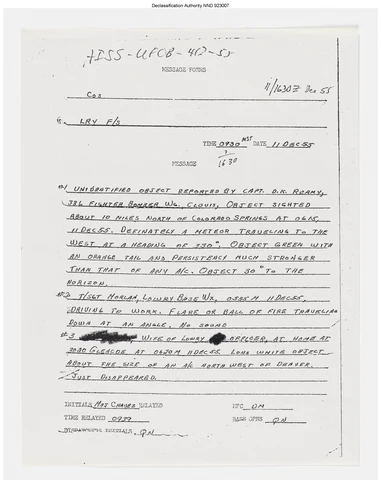 Declassification Authority NND 923007
AISS-UFOB-412-55
MESSAGE FORMS
11/1630Z Dec 55
COS
LRY F/S
TIME 0930 MST DATE 11 DEC 55
1630
MESSAGE
#1 UNIDENTIFIED OBJECT REPORTED BY CAPT. D.R.
FIGHTER BOMBER WG, CLOVIS, OBJECT SIGHTED
ABOUT 10 MILES NORTH OF COLORADO SPRINGS AT 0615,
11 DEC 55. DEFINATELY A METEOR TRAVELING TO THE
WEST AT A HEADING OF 230°. OBJECT GREEN WITH
AN ORANGE TAIL AND PERSISTENCY MUCH STRONGER
THAN THAT OF ANY A/C. OBJECT 30° TO THE
HORIZON.
#2 T/SGT MORGAN, LOWRY BASE WX, 0555 M 11 DEC 55,
DRIVING TO WORK. FLARE OR BALL OF FIRE TRAVELING
DOWN AT AN ANGLE, NO SOUND
#3 WIFE OF LOWRY OFFICER, AT HOME AT
3080 AT 0630 M 11 DEC 55. LONG WHITE OBJECT
ABOUT THE SIZE OF AN A/C NORTH WEST OF DENVER.
JUST DISAPPEARED.
INITIALS MOS RELAYED
TIME RELAYED 0939 BASE OPNS
INITIALS